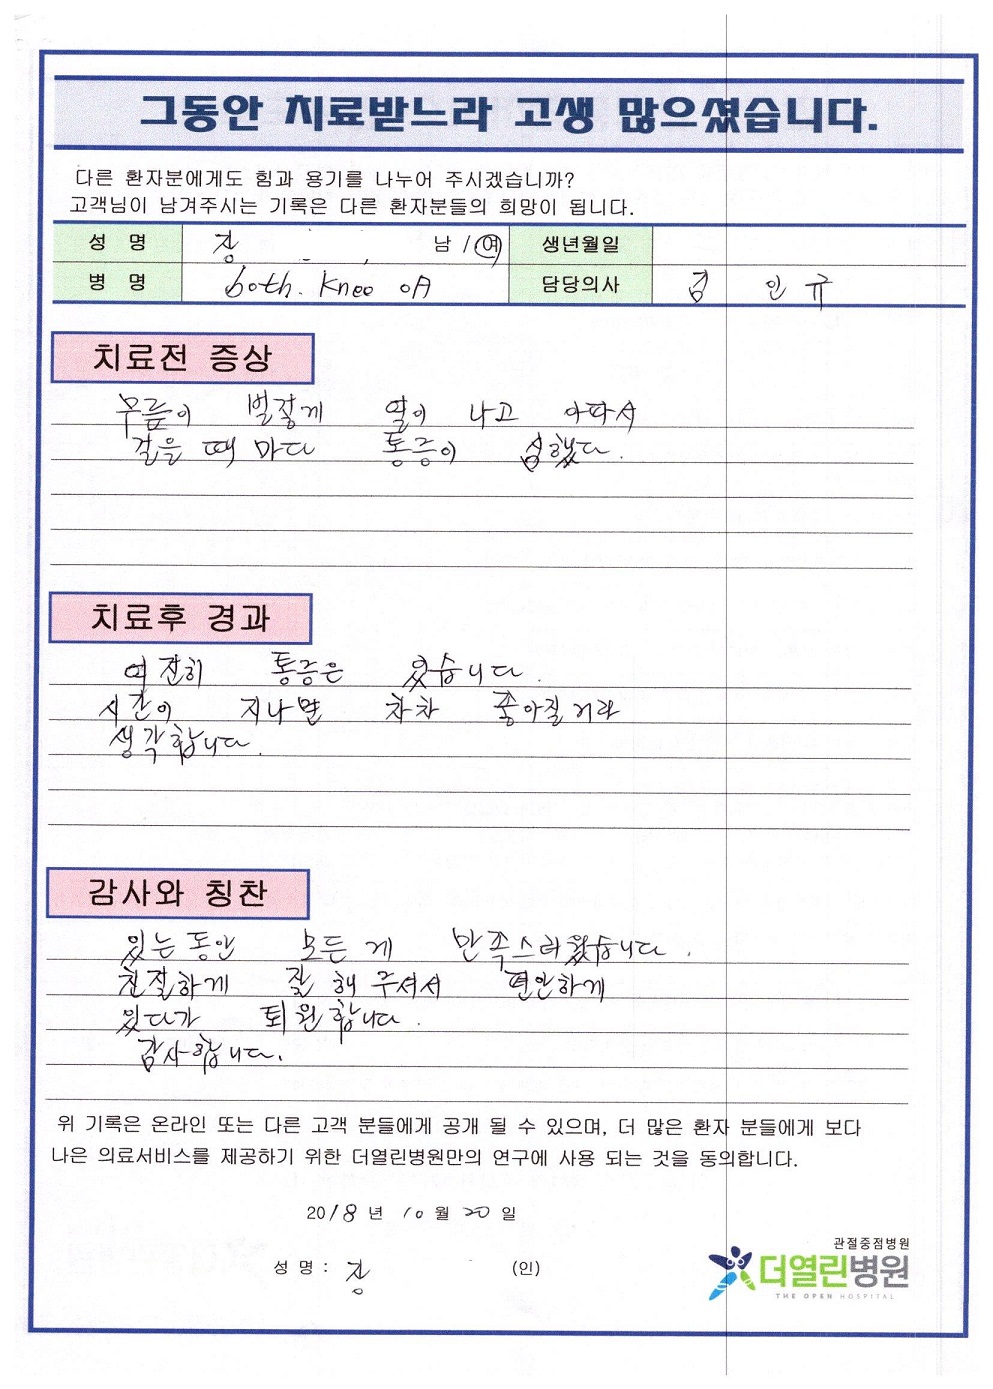 그동안 치료받느라 고생 많으셨습니다.
다른 환자분에게도 힘과 용기를 나누어 주시겠습니까?
고객님이 남겨주시는 기록은 다른 환자분들의 희망이 됩니다.
성 명 장 남 / 여 생년월일
병 명 both. knee OA 담당의사 김 인 규
치료전 증상
무릎이 벌겋게 열이 나고 아파서
걸을 때 마다 통증이 심했다.
치료후 경과
여전히 통증은 있습니다.
시간이 지나면 차차 좋아질거라
생각합니다.
감사와 칭찬
있는 동안 모든 게 만족스러웠습니다.
친절하게 잘 해 주셔서 편안하게
있다가 퇴원합니다.
감사합니다.
위 기록은 온라인 또는 다른 고객 분들에게 공개 될 수 있으며, 더 많은 환자 분들에게 보다
나은 의료서비스를 제공하기 위한 더열린병원만의 연구에 사용 되는 것을 동의합니다.
2018 년 10 월 20 일
관절중점병원
성 명 : 장 (인) 더열린병원
THE OPEN HOSPITAL